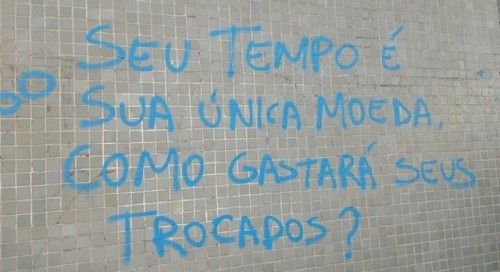 SEU TEMPO É
SUA ÚNICA MOEDA.
COMO GASTARÁ SEUS
TROCADOS?